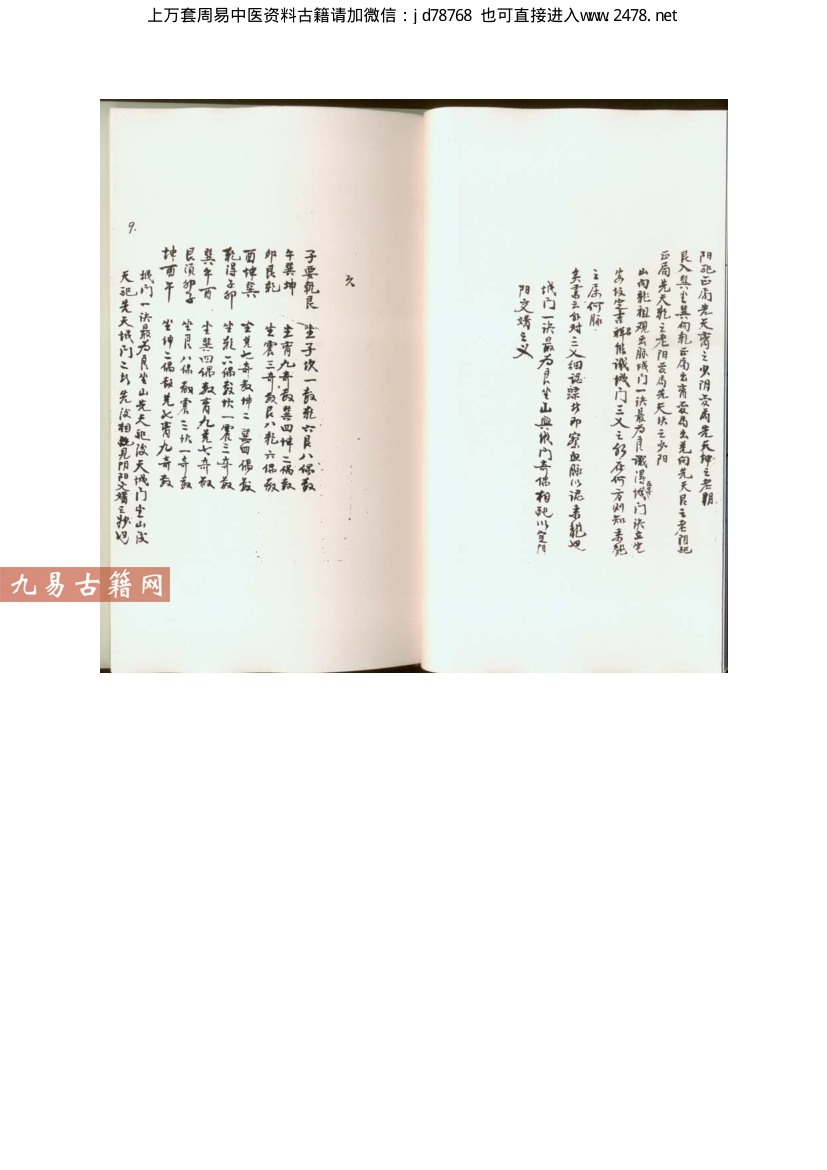 上万套周易中医资料古籍请加微信：jd78768 也可直接进入www.2478.net
阳配正局先天离之少阴变局先天坤之老阴
艮入巽坐巽向乾正局出离变局出兑向先天艮之老阴配
正局先天乾之老阳变局先天坎之少阳
山向乾祖观出脉城门一诀最为良识得城门诀立宅
安坟定吉祥能识城门三叉之所在何方则知来龙
之属何脉
奥书云能对三叉细认踪于即察血脉以认来龙也
城门一诀最为良坐山与城门奇偶相配以
阴阳交媾之义
欠
子要乾艮 坐子坎一数乾六艮八偶数
午巽坤 坐离九奇数巽四坤二偶数
卯艮乾 坐震三奇数艮八乾六偶数
酉坤巽 坐兑七奇数坤二巽四偶数
乾得子卯 坐乾六偶数坎一震三奇数
巽午酉 坐巽四偶数离九兑七奇数
艮须卯子 坐艮八偶数震三坎一奇数
坤酉午 坐坤二偶数兑七离九奇数
城门一诀最为良坐山先天配后天城门坐山后
天配先天城门之于先后相见阴阳交媾之妙也
9.
九易古籍网